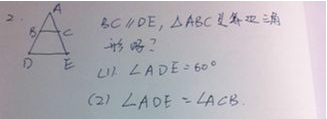 2.
A
B C
D E
BC∥DE, △ABC是等边三角
形吗?
(1) ∠ADE=60°
(2) ∠ADE=∠ACB.